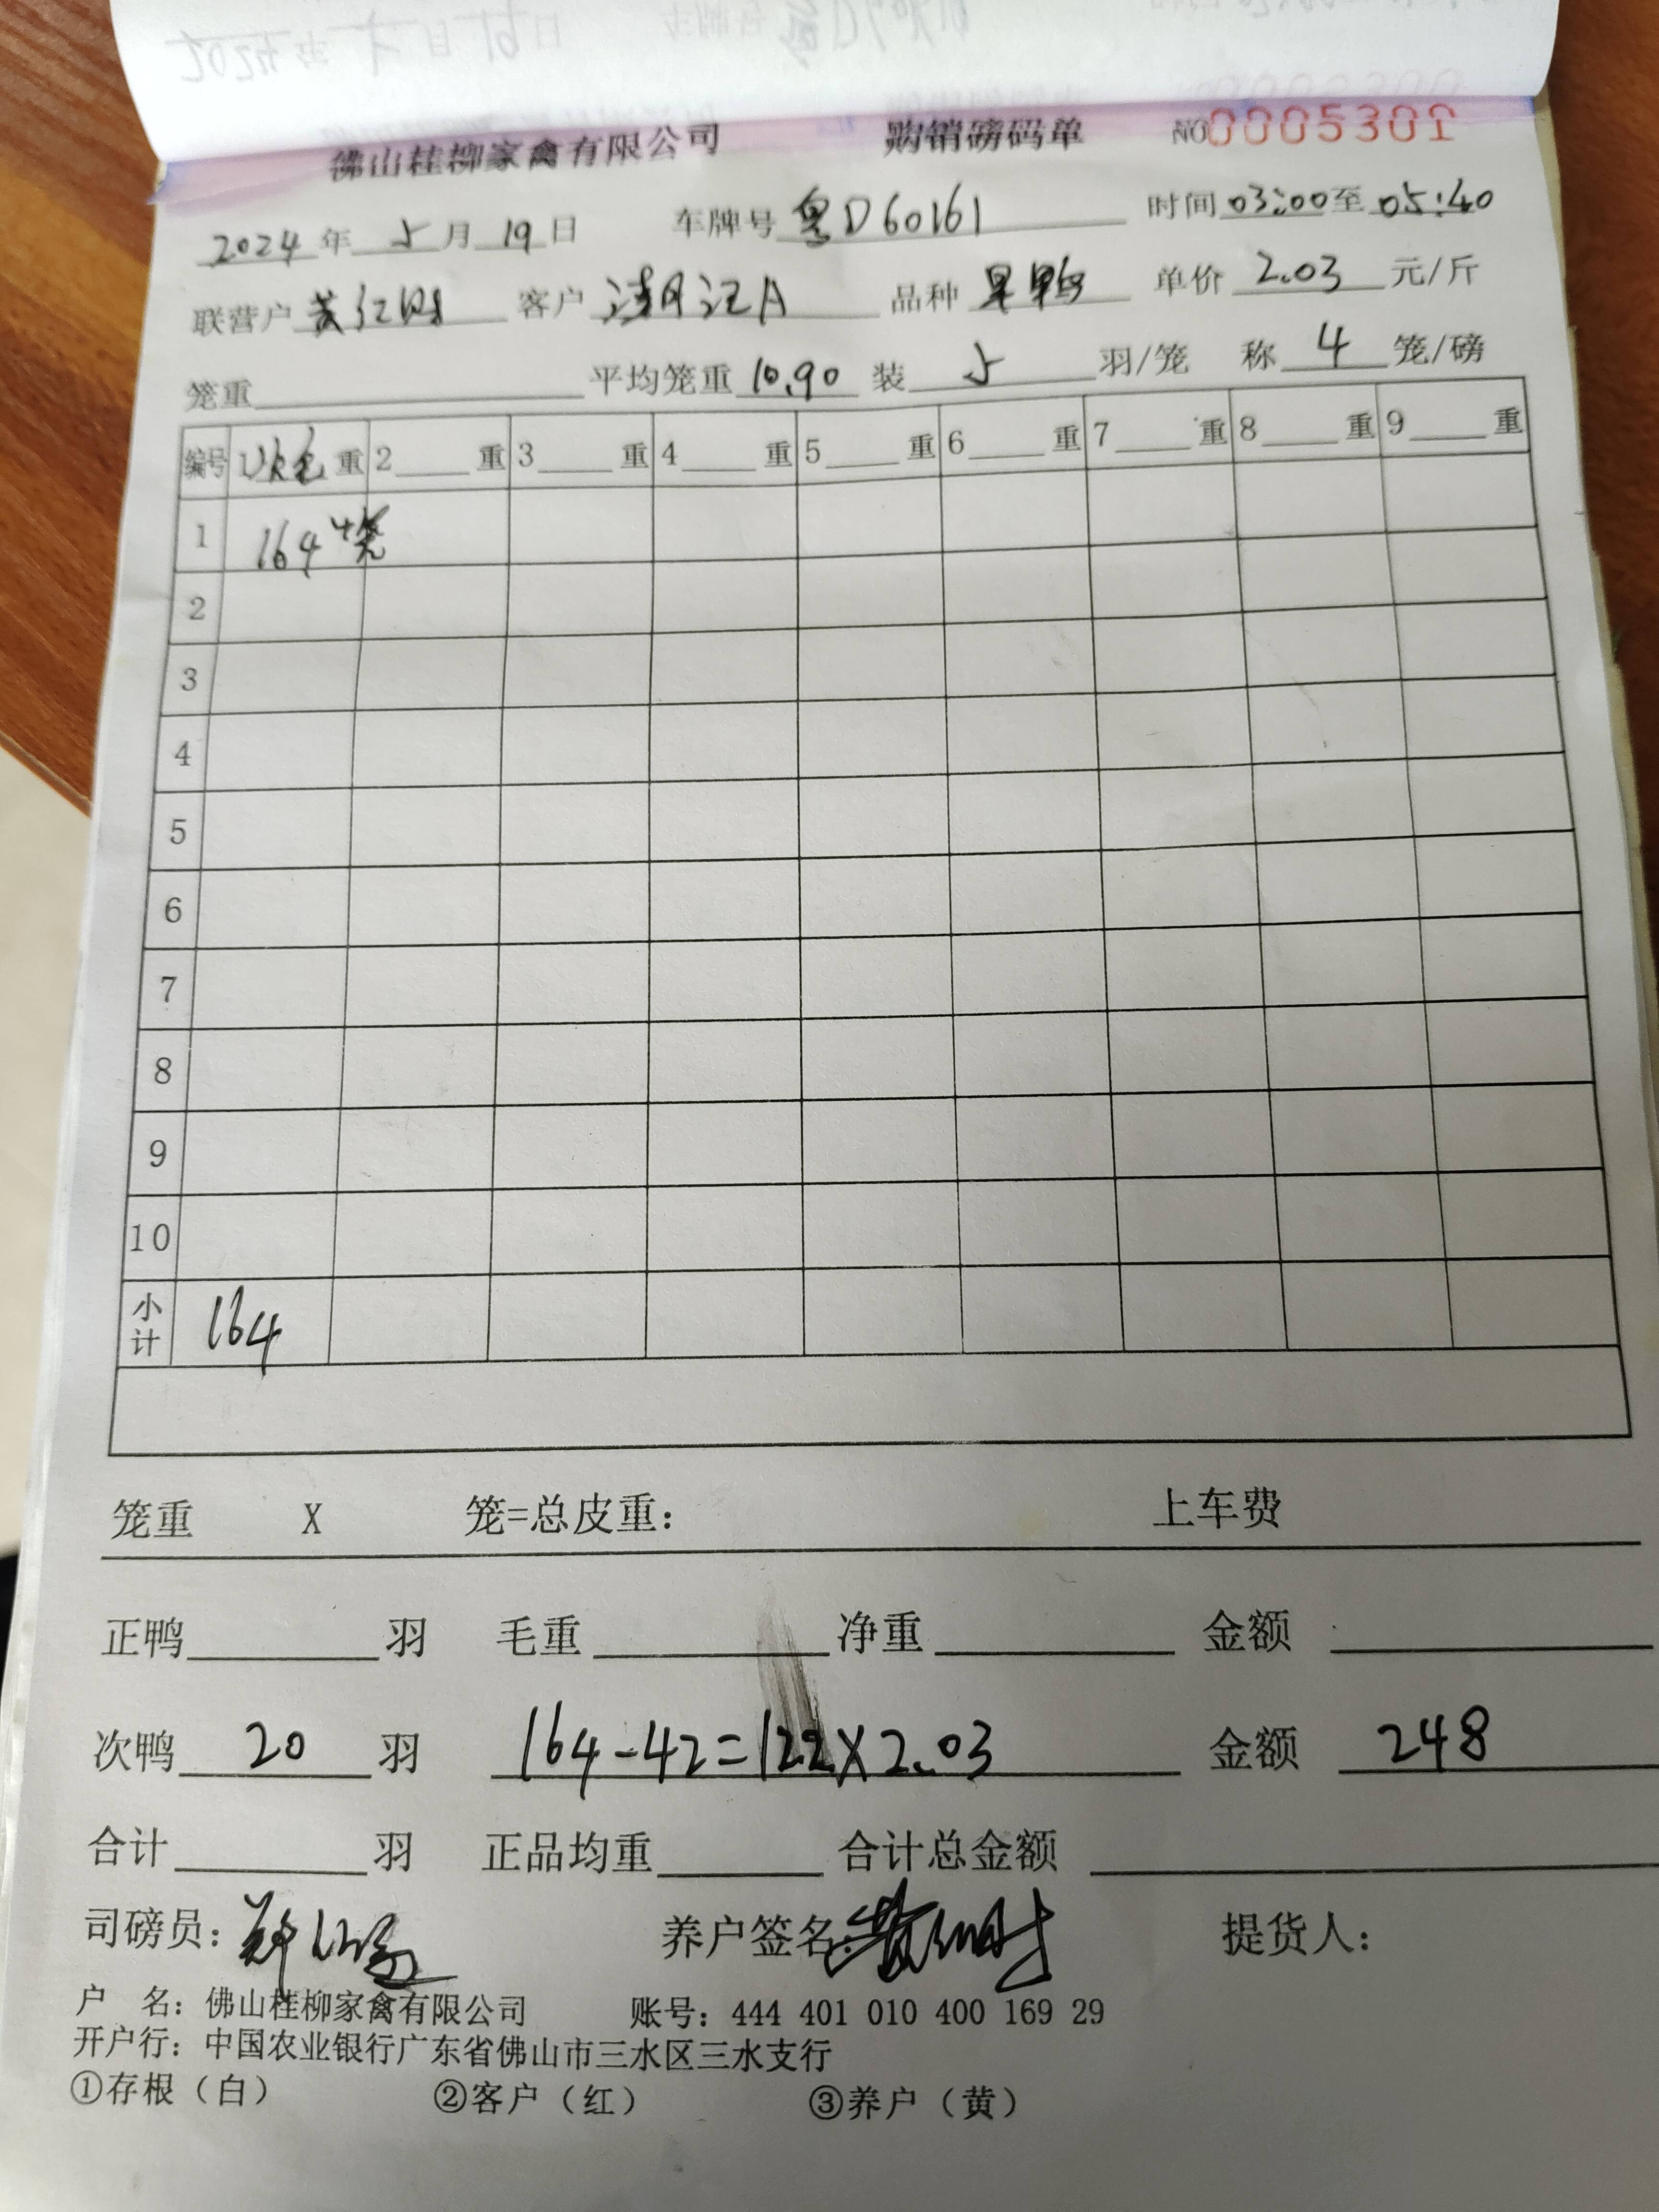 佛山桂柳家禽有限公司 购销磅码单 NO 0005301
2024年 5月 19日 车牌号 粤D60161 时间 03:00至 05:40
联营户 客户 A 品种 单价 2.03 元/斤
笼重 平均笼重 10.90 装 5 羽/笼 称 4 笼/磅
编号 重 2 重 3 重 4 重 5 重 6 重 7 重 8 重 9 重
1 164 4笼
2
3
4
5
6
7
8
9
10
小计 164
笼重 X 笼=总皮重： 上车费
正鸭 羽 毛重 净重 金额
次鸭 20 羽 164-42=122X2.03 金额 248
合计 羽 正品均重 合计总金额
司磅员： 养户签名： 提货人：
户 名：佛山桂柳家禽有限公司 账号：444 401 010 400 169 29
开户行：中国农业银行广东省佛山市三水区三水支行
①存根（白） ②客户（红） ③养户（黄）